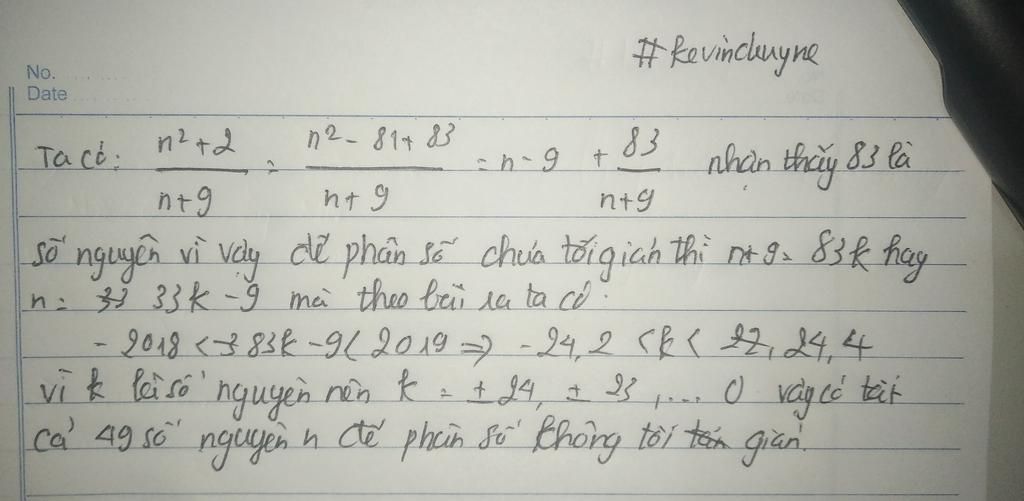 #Kevinchuyne
No.
Date
Ta có: (n²+2)/(n+9) = (n²-81+83)/(n+9) = n-9 + 83/(n+9) nhận thấy 83 là
số nguyên vì vậy để phân số chưa tối giản thì n+9 = 83k hay
n = 33k-9 mà theo bài ra ta có:
-2018 < 83k-9 < 2019 => -24,2 < k < 24,4
vì k là số nguyên nên k = ±24, ±23, ... 0 vậy có tất
cả 49 số nguyên n để phân số không tối giản.